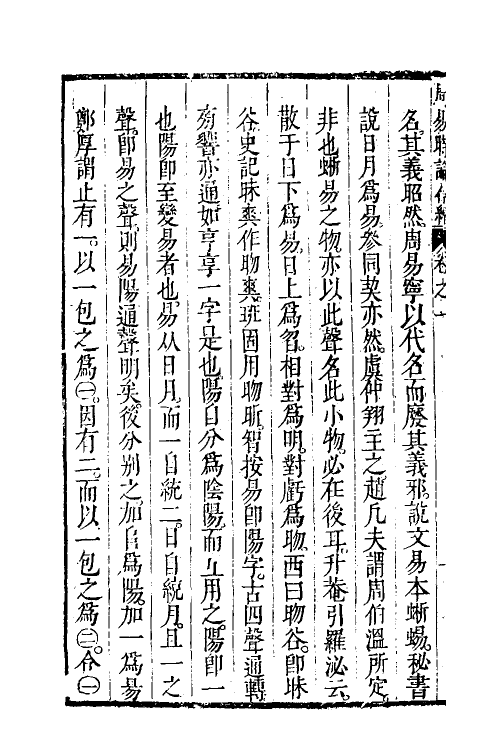 周易時論合編 卷之一
名。其義昭然。周易寧以代名而廢其義邪。說文易本蜥蜴。秘書
說日月爲易。參同契亦然。虞仲翔主之。趙凡夫謂周伯溫所定。
非也。蜥易之物。亦以此聲名此小物。必在後耳。升菴引羅泌云。
散于日下爲易。日上爲曶。相對爲明。對虧爲昒。西曰昒谷。卽昧
谷。史記昧爽作昒爽。班固用昒昕。智按易卽陽字。古四聲通轉
㫄響亦通。如亨享一字是也。陽自分爲陰陽。而互用之。陽卽一
也。陽卽至變易者也。易从日月。而一自統二。日自統月。且一之
聲。卽易之聲。則易陽通聲明矣。後分別之。加𨸏爲陽。加一爲昜
鄭厚謂止有一。以一包之爲㊀。因有二。而以一包之爲㊁。合㊀